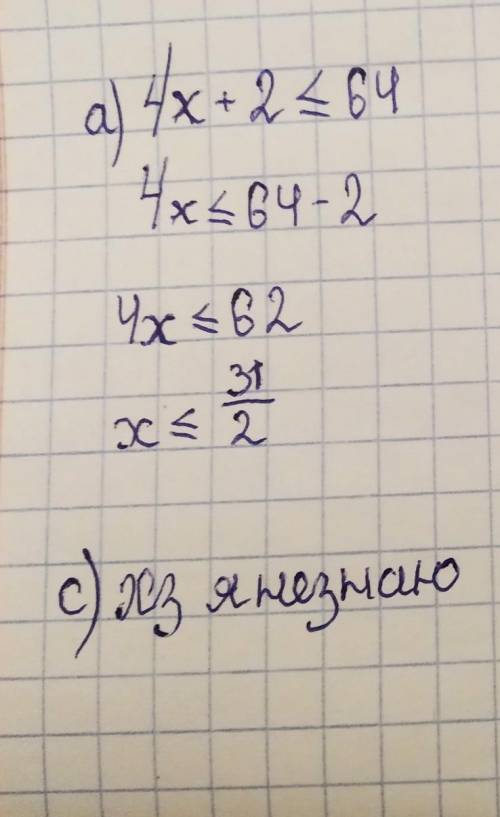 а) 4x + 2 ≤ 64
4x ≤ 64 - 2
4x ≤ 62
x ≤ 31/2
с) хз я незнаю